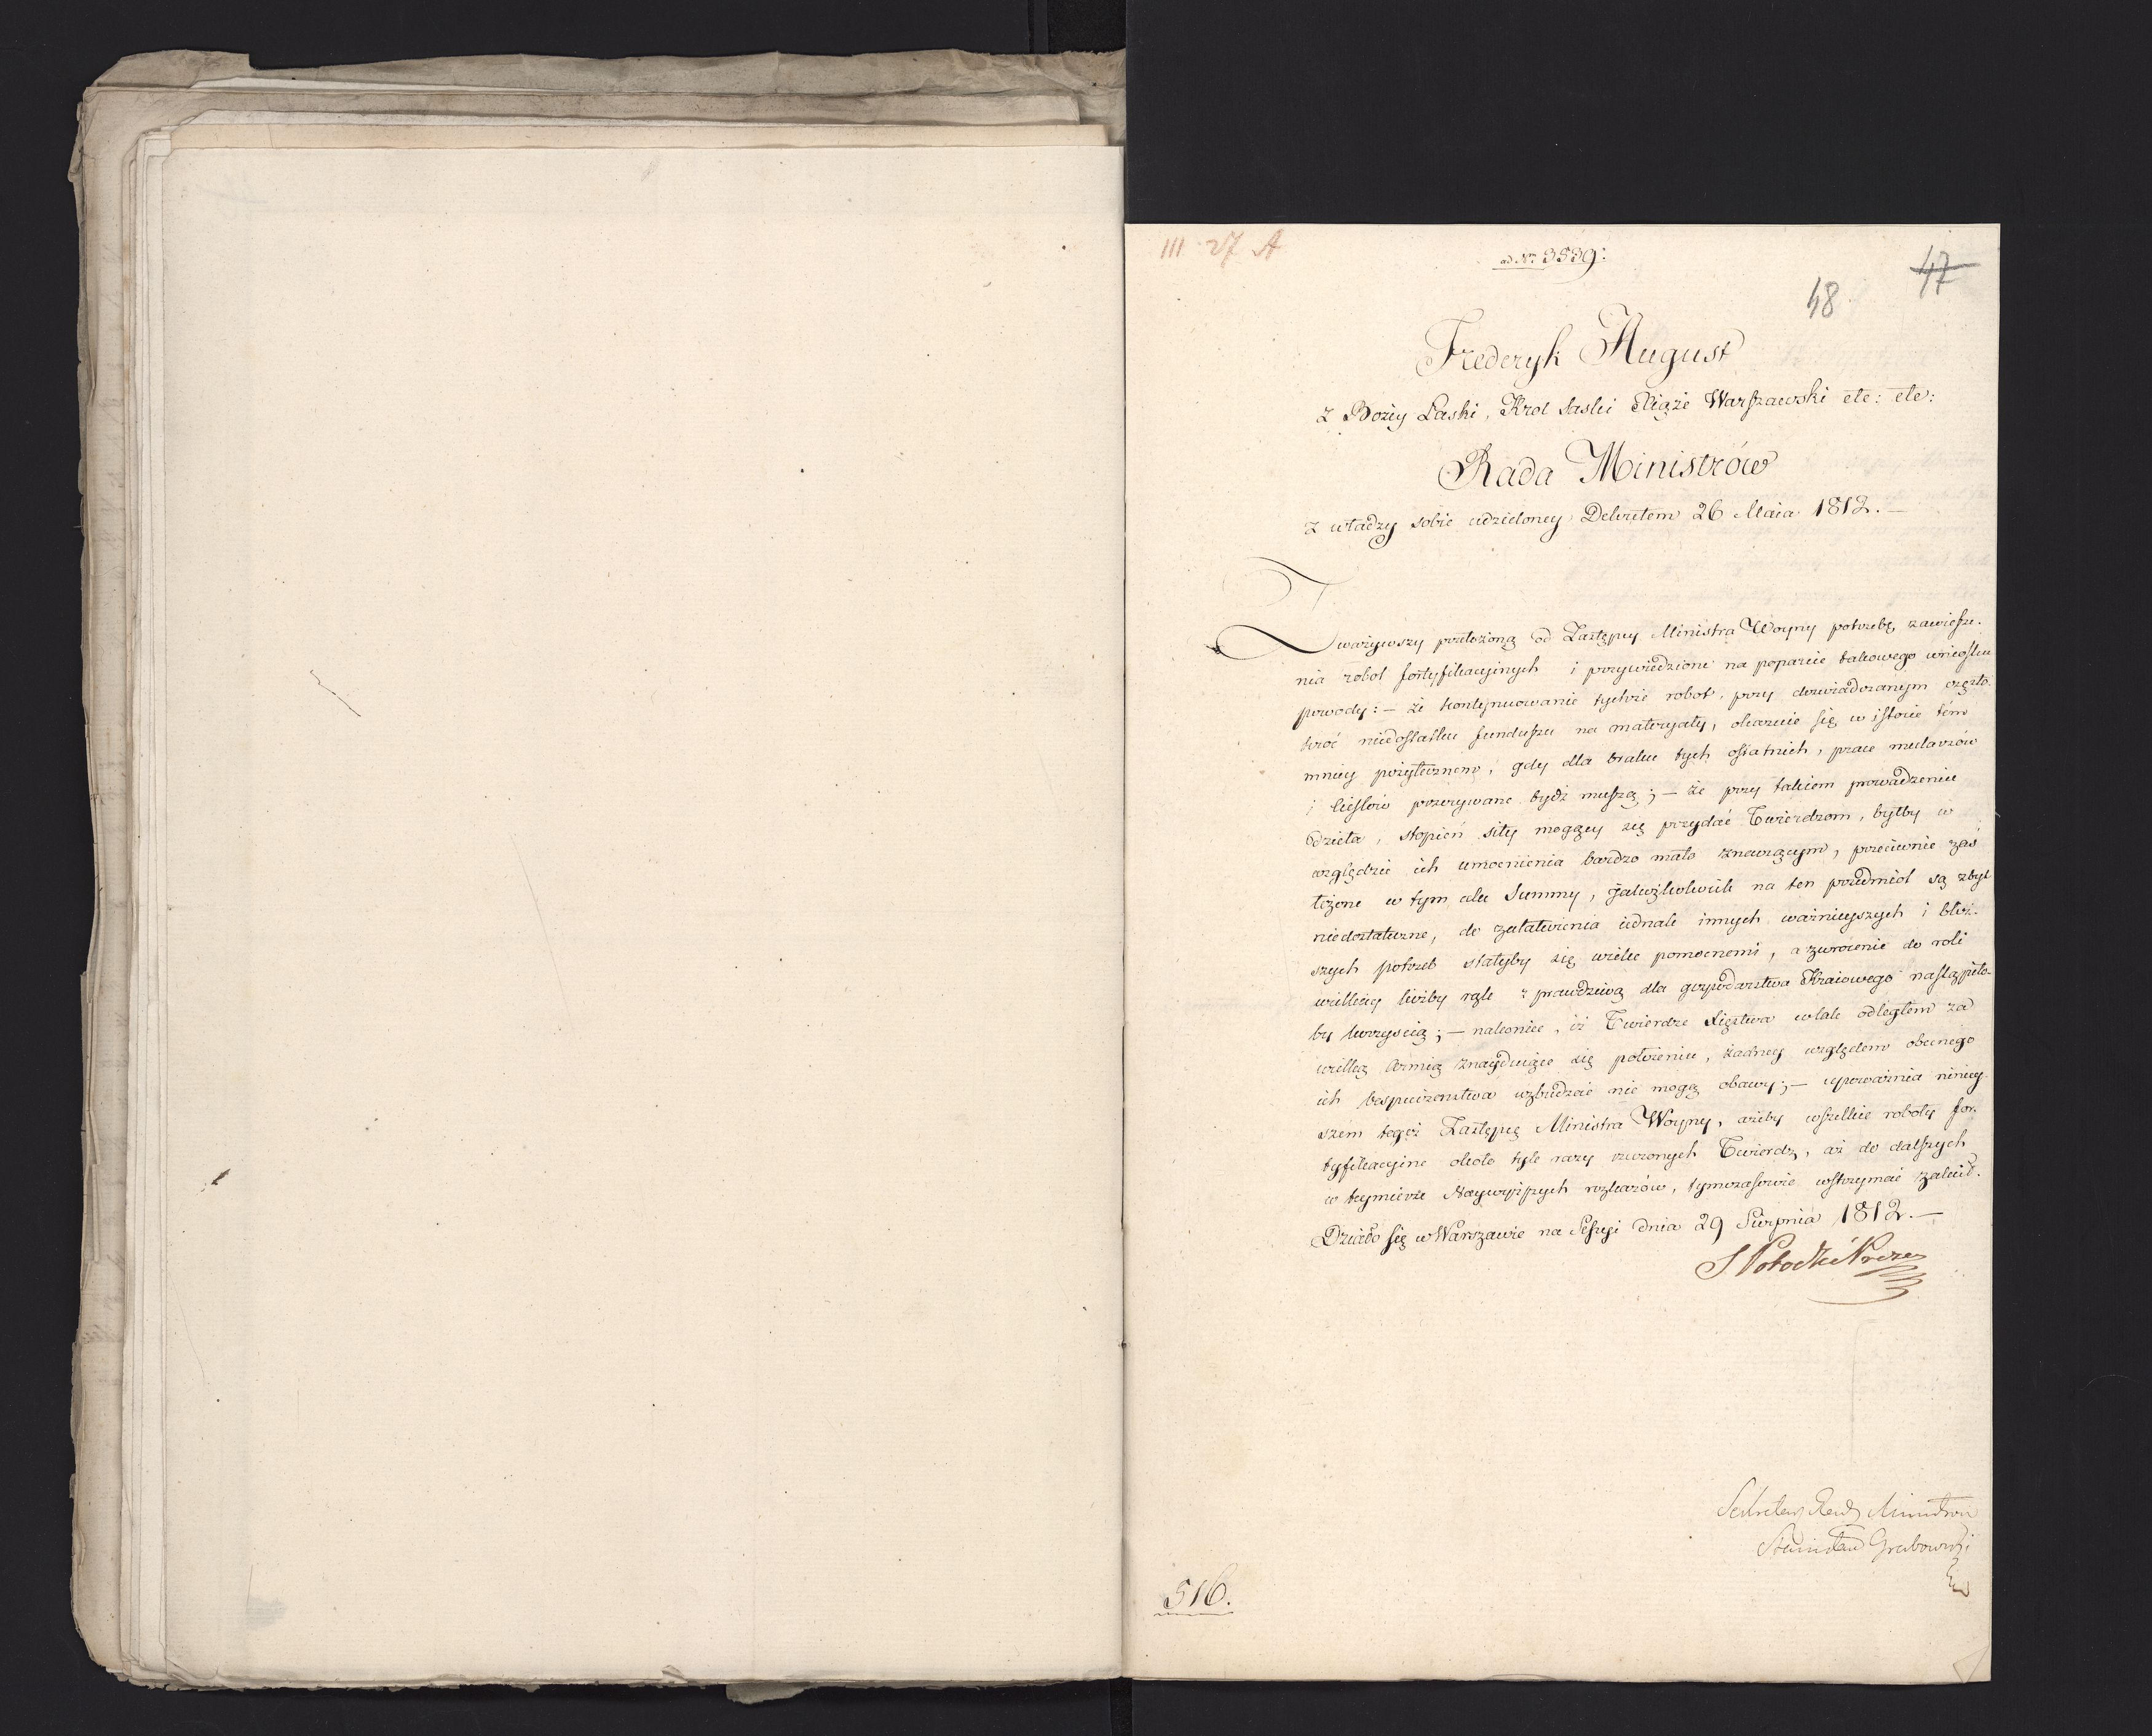 III 27 A
ad Nr. 3539:
47
48
Frederyk August
z Bożey Łaski, Krol Saski Xiąże Warszawski etc: etc:
Rada Ministrów
z władzy sobie udzieloney Dekretem 26 Maia 1812.—
Zważywszy przełożoną od Zastępcy Ministra Woyny potrzebę zawiesze-
nia robot fortyfikacyinych i przywiedzione na poparcie takowego wniosku
powody: — że kontynuowanie tychże robot, przy doświadczanym często-
kroć niedostatku funduszu na materyały, okazuie się w istocie tém
mniey pożytecznem, gdy dla braku tych ostatnich, prace mularzów
i Cieślów przerywane bydź muszą; — że przy takiem prowadzeniu
dzieła, stopień siły mogący się przydać Twierdzom, byłby w
względzie ich umocnienia bardzo mało znaczącym, przeciwnie zaś
łożone w tym celu Summy, jakożkolwiek na ten przedmiot są zbyt
niedostateczne, do załatwienia iednak innych ważnieyszych i bliż-
szych potrzeb stałyby się wielce pomocnemi, a zwrocenie do roli
wielkiey liczby rąk z prawdziwą dla gospodarstwa Kraiowego nastąpiło-
by korzyścią; — nakoniec, iż Twierdze Xięstwa w tak odległem za
wielką Armią znayduiące się położeniu, żadney względem obecnego
ich bespieczeństwa wzbudzać nie mogą obawy; — upoważnia niniey-
szém tegoż Zastępcę Ministra Woyny, ażeby wszelkie roboty for-
tyfikacyine około tyle razy rzeczonych Twierdz, aż do dalszych
w teymierze Naywyższych rozkazów, tymczasowie wstrzymać zalecił.
Działo się w Warszawie na Sessyi dnia 29 Sierpnia 1812.—
S Potocki Prezes
Sekretarz Rady Ministrów
Stanisław Grabowski
516.